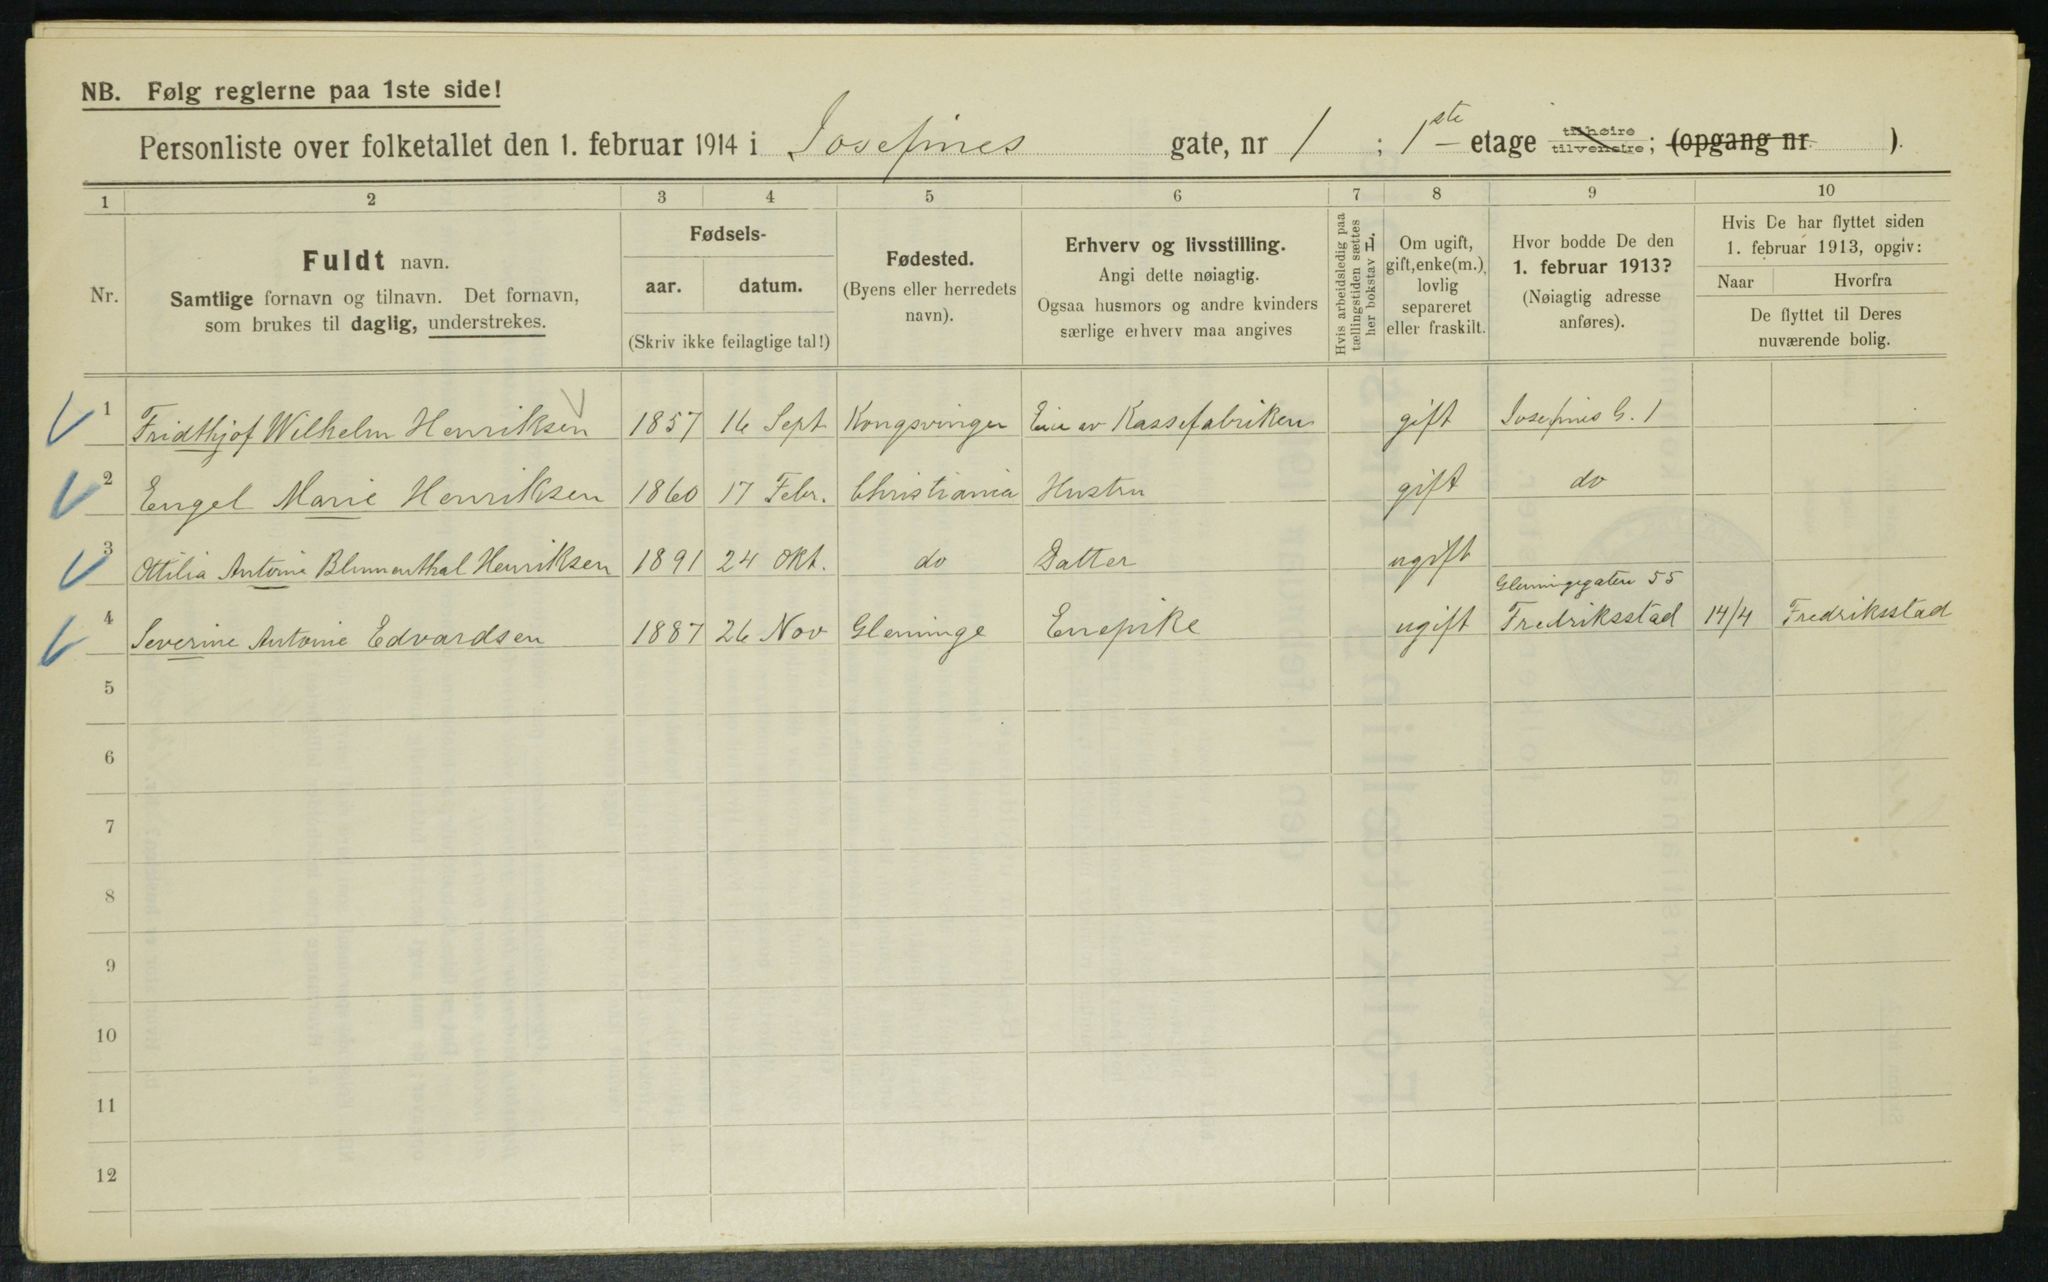 NB. Følg reglerne paa 1ste side!
Personliste over folketallet den 1. februar 1914 i Josefines gate, nr 1 ; 1ste etage tilhøire tilvenstre; (opgang nr. ).
1 2 3 4 5 6 7 8 9 10
Nr.
Fuldt navn.
Samtlige fornavn og tilnavn. Det fornavn,
som brukes til daglig, understrekes.
Fødsels-
aar. datum.
(Skriv ikke feilagtige tal!)
Fødested.
(Byens eller herredets
navn).
Erhverv og livsstilling.
Angi dette nøiagtig.
Ogsaa husmors og andre kvinders
særlige erhverv maa angives
Hvis arbeidsledig paa
tællingstiden sættes
her bokstav L.
Om ugift,
gift, enke(m.),
lovlig
separeret
eller fraskilt.
Hvor bodde De den
1. februar 1913?
(Nøiagtig adresse
anføres).
Hvis De har flyttet siden
1. februar 1913, opgiv:
Naar Hvorfra
De flyttet til Deres
nuværende bolig.
1 Fridthjof Wilhelm Henriksen 1857 16 Sept Kongsvinger Eier av Kassefabriken gift Josefines G. 1 —
2 Engel Marie Henriksen 1860 17 Febr. Christiania Hustru gift do
3 Ottilia Antonie Blumenthal Henriksen 1891 24 Okt. do Datter ugift
Glemmingegaten 55
4 Severine Antonie Edvardsen 1887 26 Nov Glemminge Enepike ugift Fredriksstad 14/4 Fredriksstad
5
6
7
8
9
10
11
12